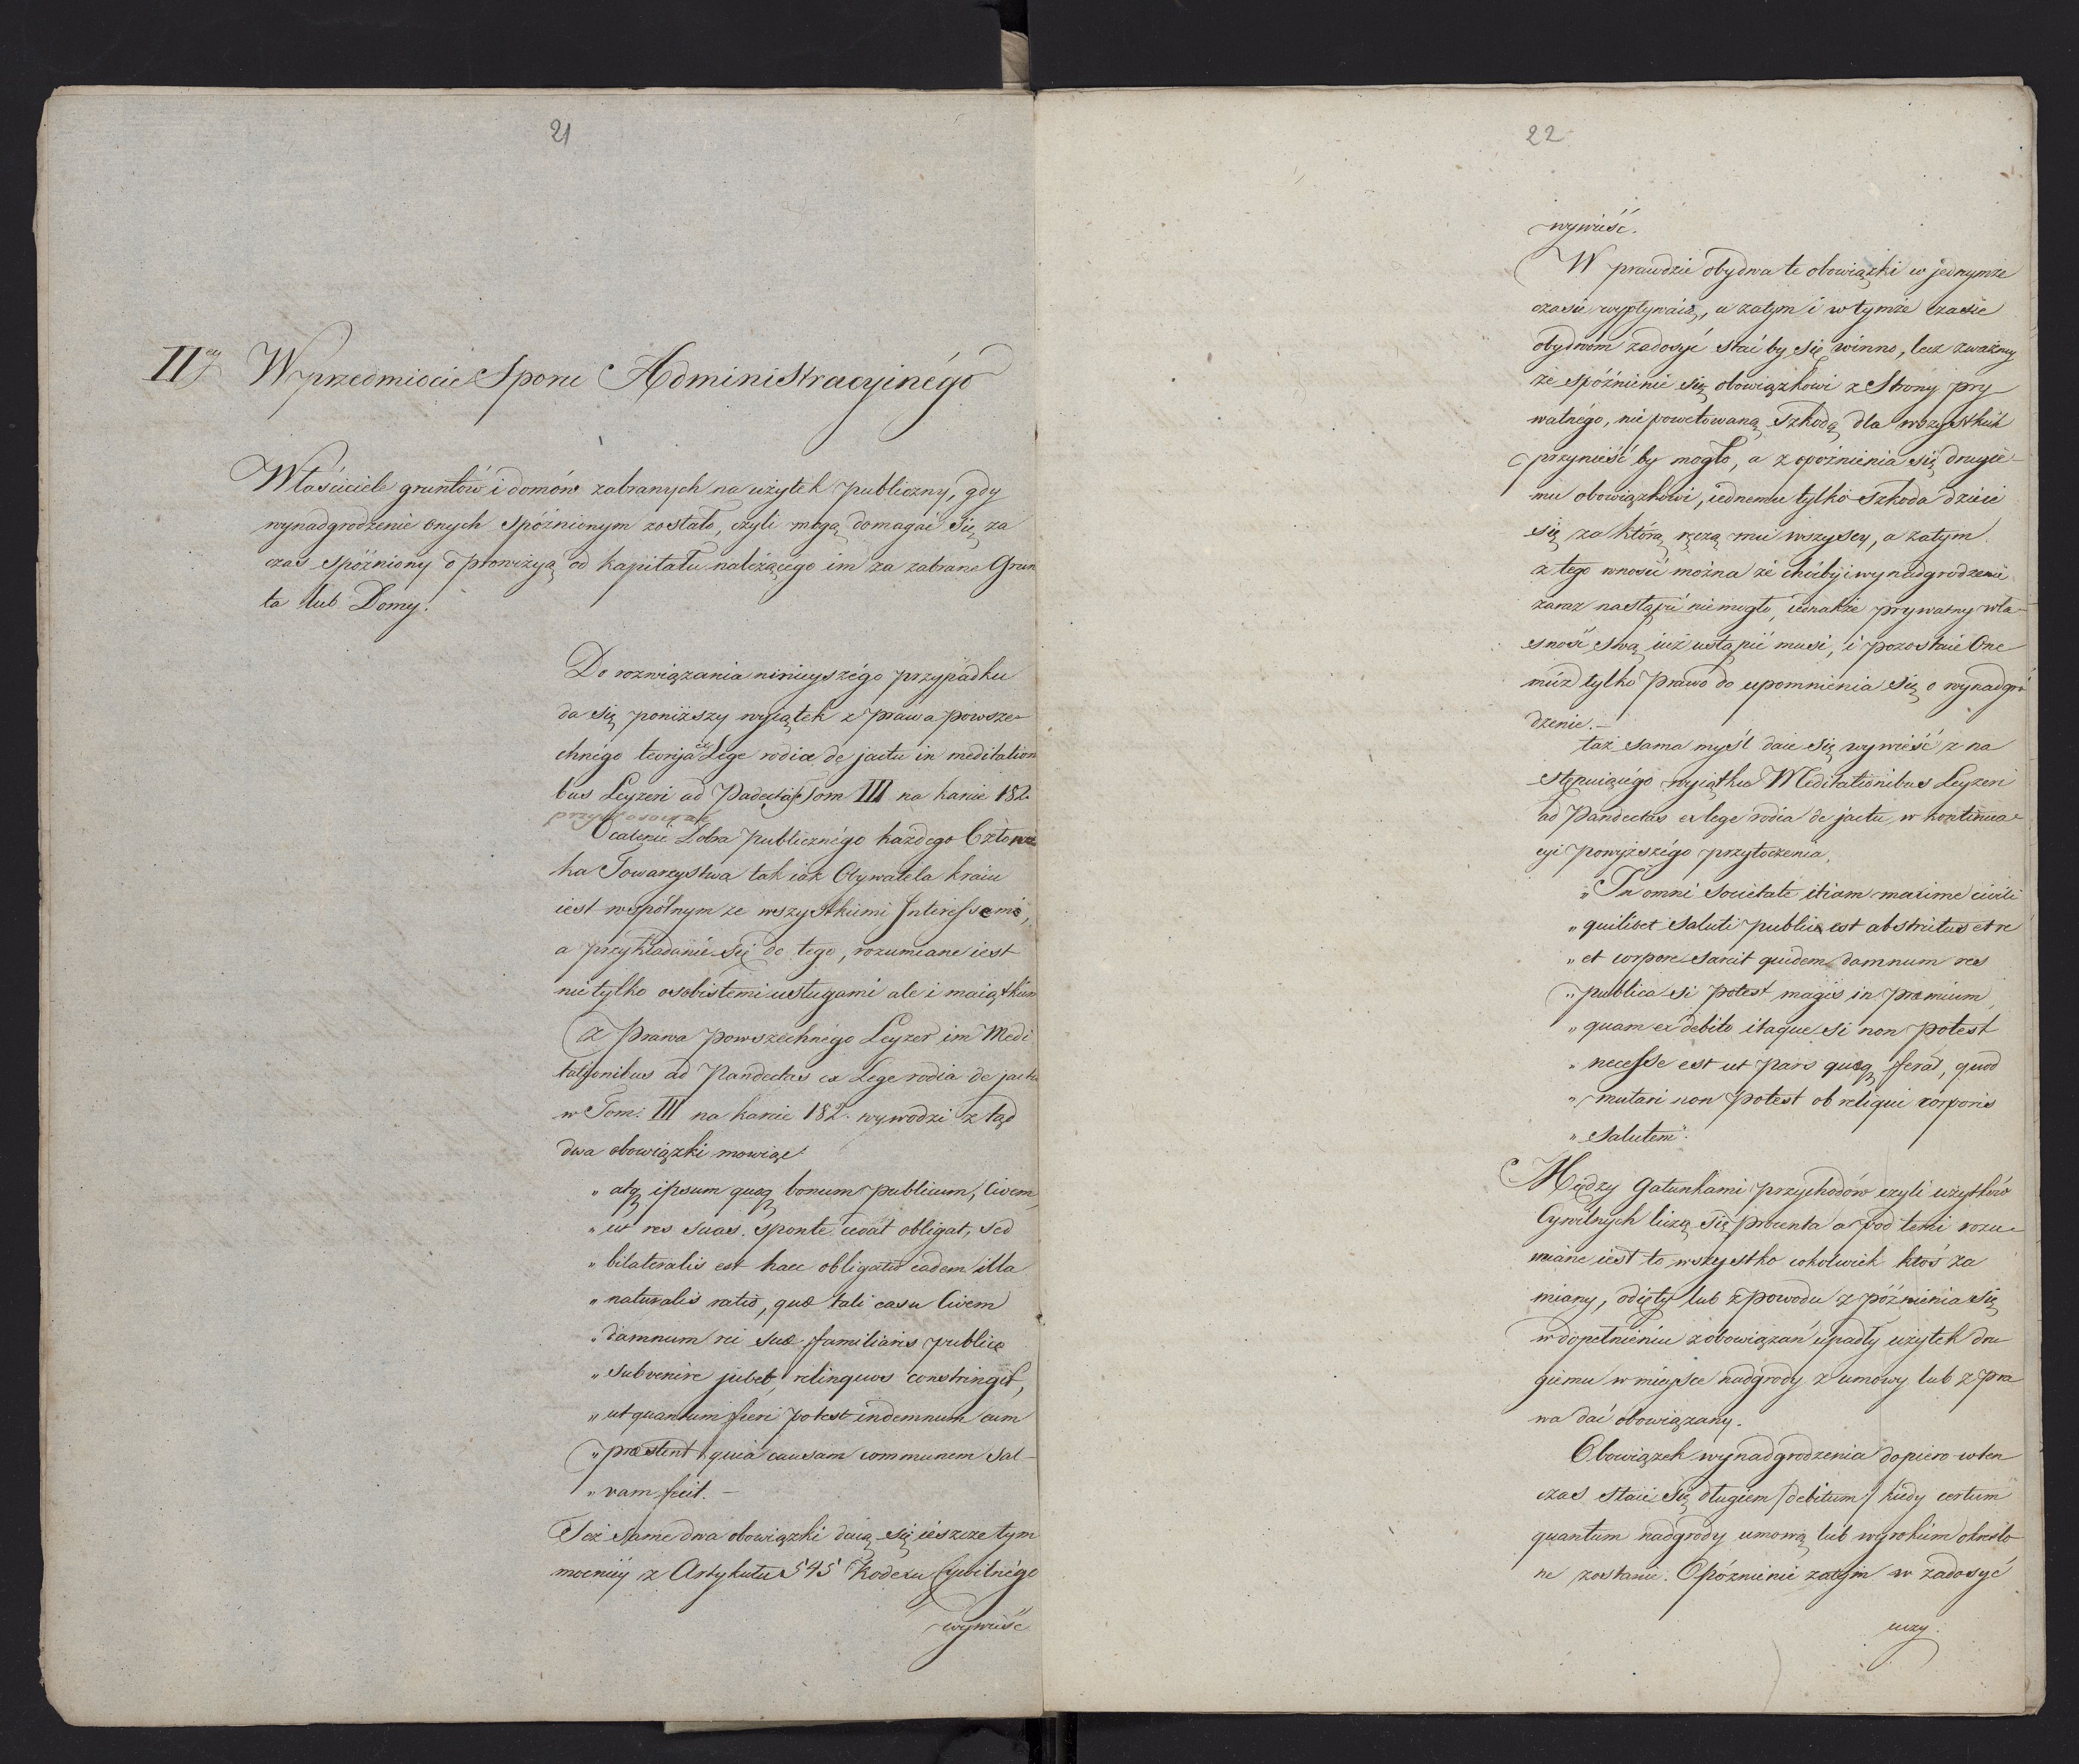 21
IIgi W przedmiocie Sporu Administracyinégo
Właściciele gruntów i domów zabranych na użytek publiczny, gdy
wynadgrodzenie onych spóźnionym zostało, czyli mogą domagać się za
czas spóźniony o prowizyą od kapitału należącego im za zabrane Grun
ta lub Domy.
Do rozwiązania ninieyszégo przypadku
da się poniższy wyiątek z prawa powsze-
chnégo teorija ex Lege rodia de jactu in meditation
bus Leyzeri ad Padectas Tom III na karcie 182.
przystosować
Ocalenie Dobra publicznégo każdego Człowie
ka Towarzystwa tak iak Obywatela kraiu
iest wspólnym ze wszystkiemi Interessem,
a przykładanie się do tego, rozumiane iest
nie tylko osobistemi usługami ale i maiątkiem
Z prawa powszechnégo Leyzer im Medi
tatyonibus ad Pandectas ex Lege rodia de jactu
w Tom: III na karcie 182. wywodzi z tąd
dwa obowiązki mowiąc:
„ atq ipsum quoq bonum publicum, Civem
„ ut res suas sponte cedat obligat, sed
„ bilateralis est haec obligatio eadem illa
„ naturalis ratio, quæ tali casu Civem
„ damnum rei suæ familiaris publice
„ subvenire jubet, relinquos constringit,
„ ut quantum fieri potest indemnum eum
„ præstent quia causam communem sal-
„ vam fecit. –
Też same dwa obowiązki daią się ieszcze tym
mocniéy z Artykułu 545 Kodexu Cywilnégo
wywieść
22
wywieść.
W prawdzie obydwa te obowiązki w jednymże
czasie wypływaią, a zatym i w tymże czasie
obydwom zadosyć stać by się winno, lecz zważmy
że spóźnienie się obowiązkowi z Strony pry
watnégo, nie powetowaną szkodę dla wszystkich
przynieść by mogło, a z opoźnienia się drugie-
mu obowiązkowi, iednemu tylko szkoda dzieie
się za którą ręczą mu wszyscy, a zatym
z tego wnosić można że chićby i wynadgrodzenie
zaraz nastąpić nie mogło, iednakże prywatny wła-
sność swą iuż ustąpić musi, i pozostaie One
múż tylko prawo do upomnienia się o wynadgro
dzenie. –
taż sama myśl daie się wywieść z na
stępuiącégo wyiątku Meditationibus Leyzeri
ad Pandectas ex lege rodia de jactu w kontinua-
cyi powyższégo przytoczenia,
„ In omni societate etiam maxime civili
„ quilibet saluti publicæ est abstrictus et re
„ et corpore sarcit quidem damnum res
„ publica si potest magis in præmium
„ quam ex debito itaque si non potest
„ necesse est ut pars quæq ferad, quod
„ mutari non potest ob reliqui corporis
„ salutem“.
Między Gatunkami przychodów czyli użytków
Cywilnych liczą się procenta a pod temi rozu-
miane iest to wszystko cokolwiek ktoś za
miany, odięty lub z powodu z późnienia się
w dopełnieniu zobowiązań upadły użytek dru
giemu w miejsce nadgrody z umowy lub z pra
wa dać obowiązany.
Obowiązek wynadgrodzenia dopiero wten
czas staie się długiem /debitum/ kiedy certum
quantum nadgrody umową lub wyrokiem określo
ne zostanie. Opóźnienie zatym w zadosyć
uczy.